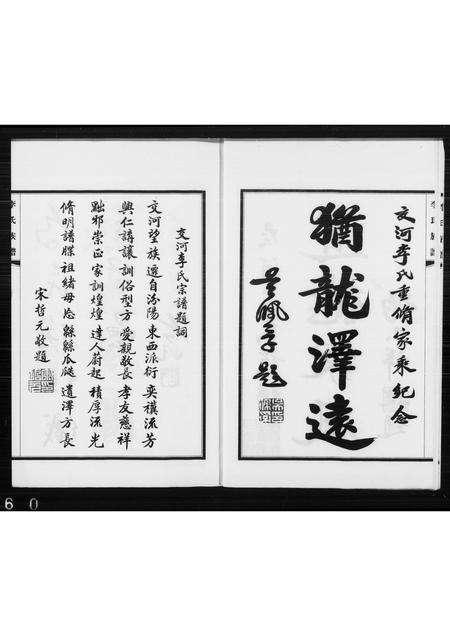 交河李氏重脩家乘紀念
猶龍澤遠
吳佩孚題
李氏族譜
交河李氏宗譜題詞
交河望族 遷自汾陽 東西派衍 奕禩流芳
興仁講讓 訓俗型方 愛親敬長 孝友慈祥
黜邪崇正 家訓煌煌 達人蔚起 積厚流光
脩明譜牒 祖緒毋忘 緜緜瓜瓞 遺澤方長
宋哲元敬題
李氏族譜
60